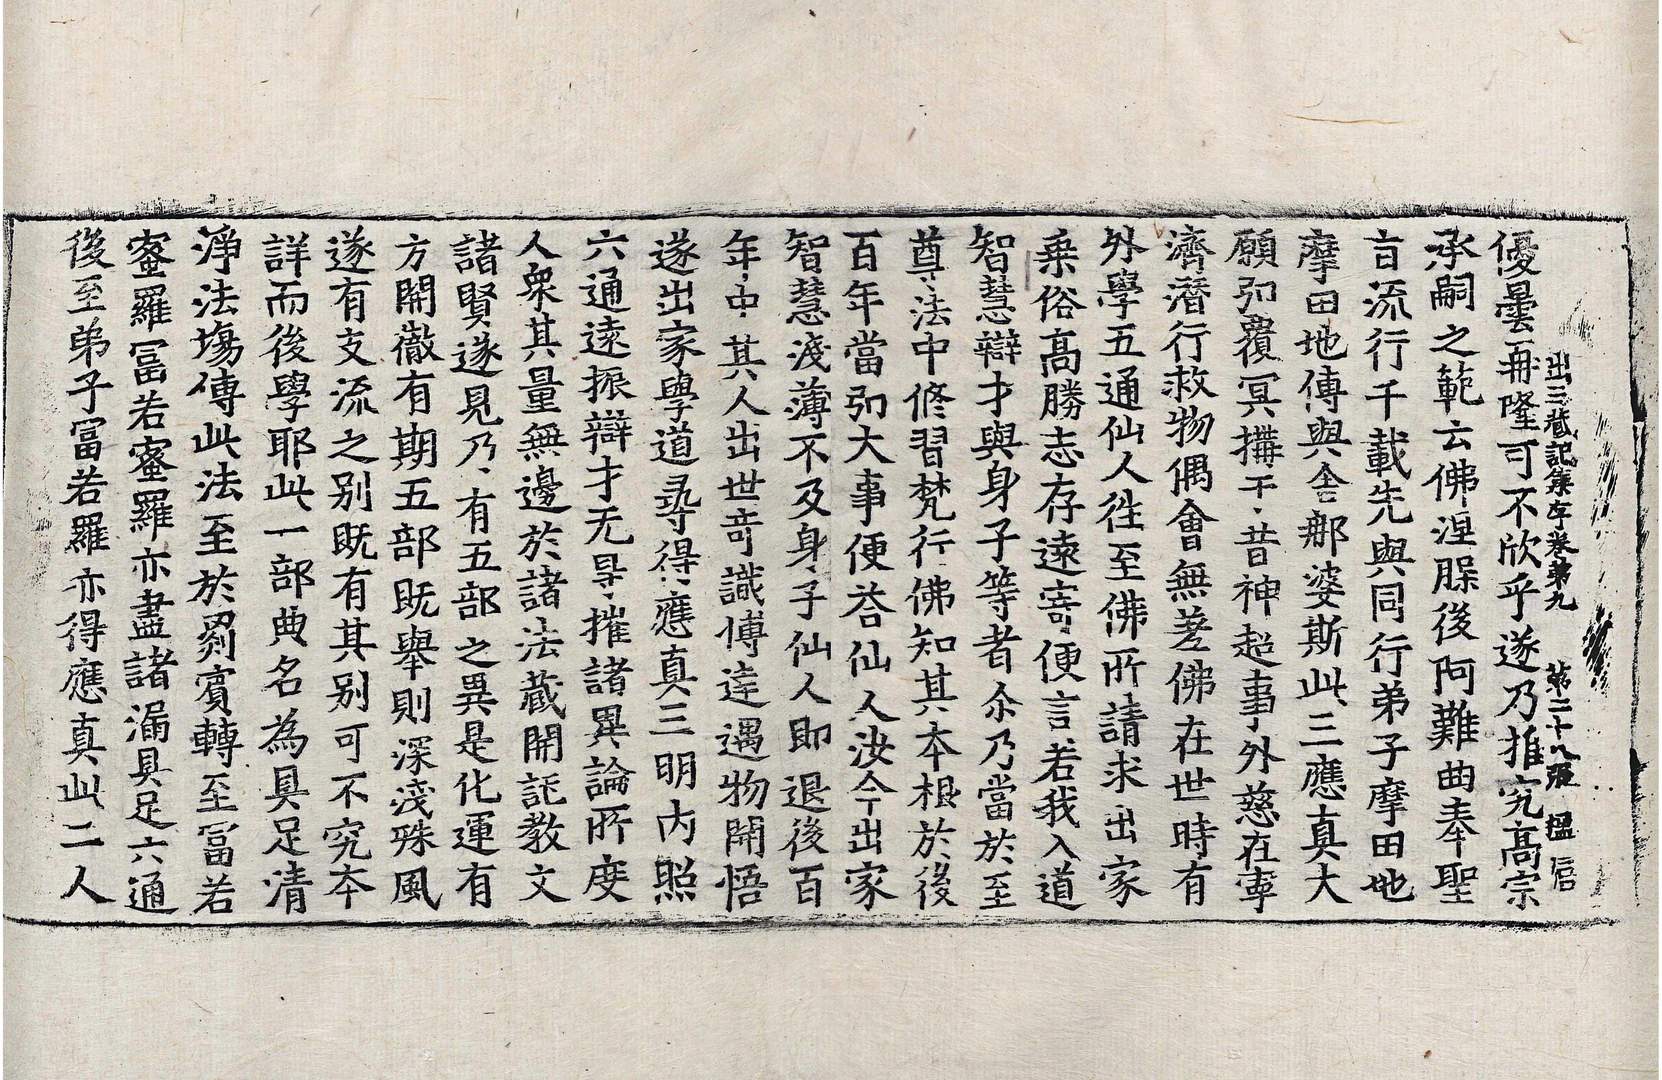 出三蔵記集序卷第九 第二十八張 搵信
優曇再隆可不欣乎遂乃推究高宗
承嗣之範云佛涅槃後阿難曲奉聖
旨流行千載先與同行弟子摩田地
摩田地傳與舍那婆斯此三應真大
願弘覆冥搆于昔神超事外慈在宰
濟潛行救物偶會無差佛在世時有
外學五通仙人往至佛所請求出家
乗俗高勝志存遠寄便言若我入道
智慧辯才與身子等者尒乃當於至
尊法中修習梵行佛知其本根於後
百年當弘大事便荅仙人汝今出家
智慧淺薄不及身子仙人即退後百
年中其人出世竒識傅達遇物開悟
遂出家學道尋得應真三明内照
六通遠振辯才无㝵摧諸異論所度
人衆其量無邊於諸法藏開託教文
諸賢遂見乃有五部之異是化運有
方開徹有期五部既舉則深淺殊風
遂有支流之别既有其别可不究本
詳而後學耶此一部典名為具足清
淨法塲傳此法至於罽賓轉至冨若
蜜羅冨若蜜羅亦盡諸漏具足六通
後至弟子冨若羅亦得應真此二人